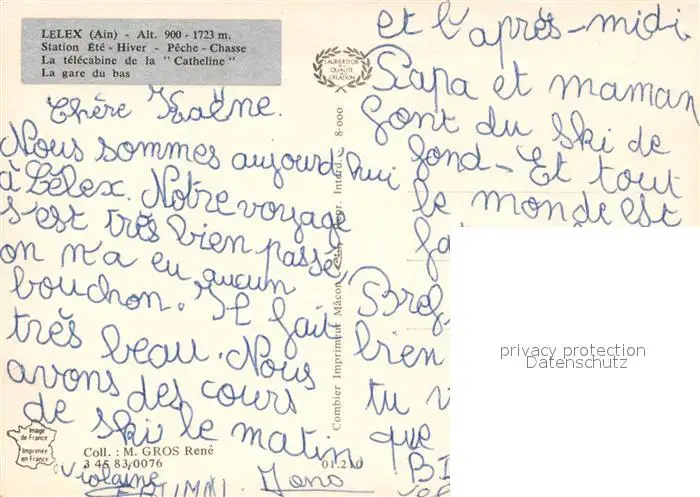 LELEX (Ain) - Alt. 900 - 1723 m.
Station Été - Hiver - Pêche - Chasse
La télécabine de la "Catheline"
La gare du bas
LAURIER D'OR
DE LA
QUALITÉ
CRÉATION
Chère
Nous sommes aujourd'hui
à Lélex. Notre voyage
s'est très bien passé,
on n'a eu aucun
bouchon. Il fait
très beau. Nous
avons des cours
de ski le matin
et l'après-midi
Papa et maman
font du ski de
fond. Et tout
le monde est
Bref
bien
tu
que
Violaine
Combier Imprimeur Mâcon
Interd. 8-000
Image
de France
Imprimée
en France
Coll. : M. GROS René
3 45 83/0076
01.210
privacy protection
Datenschutz